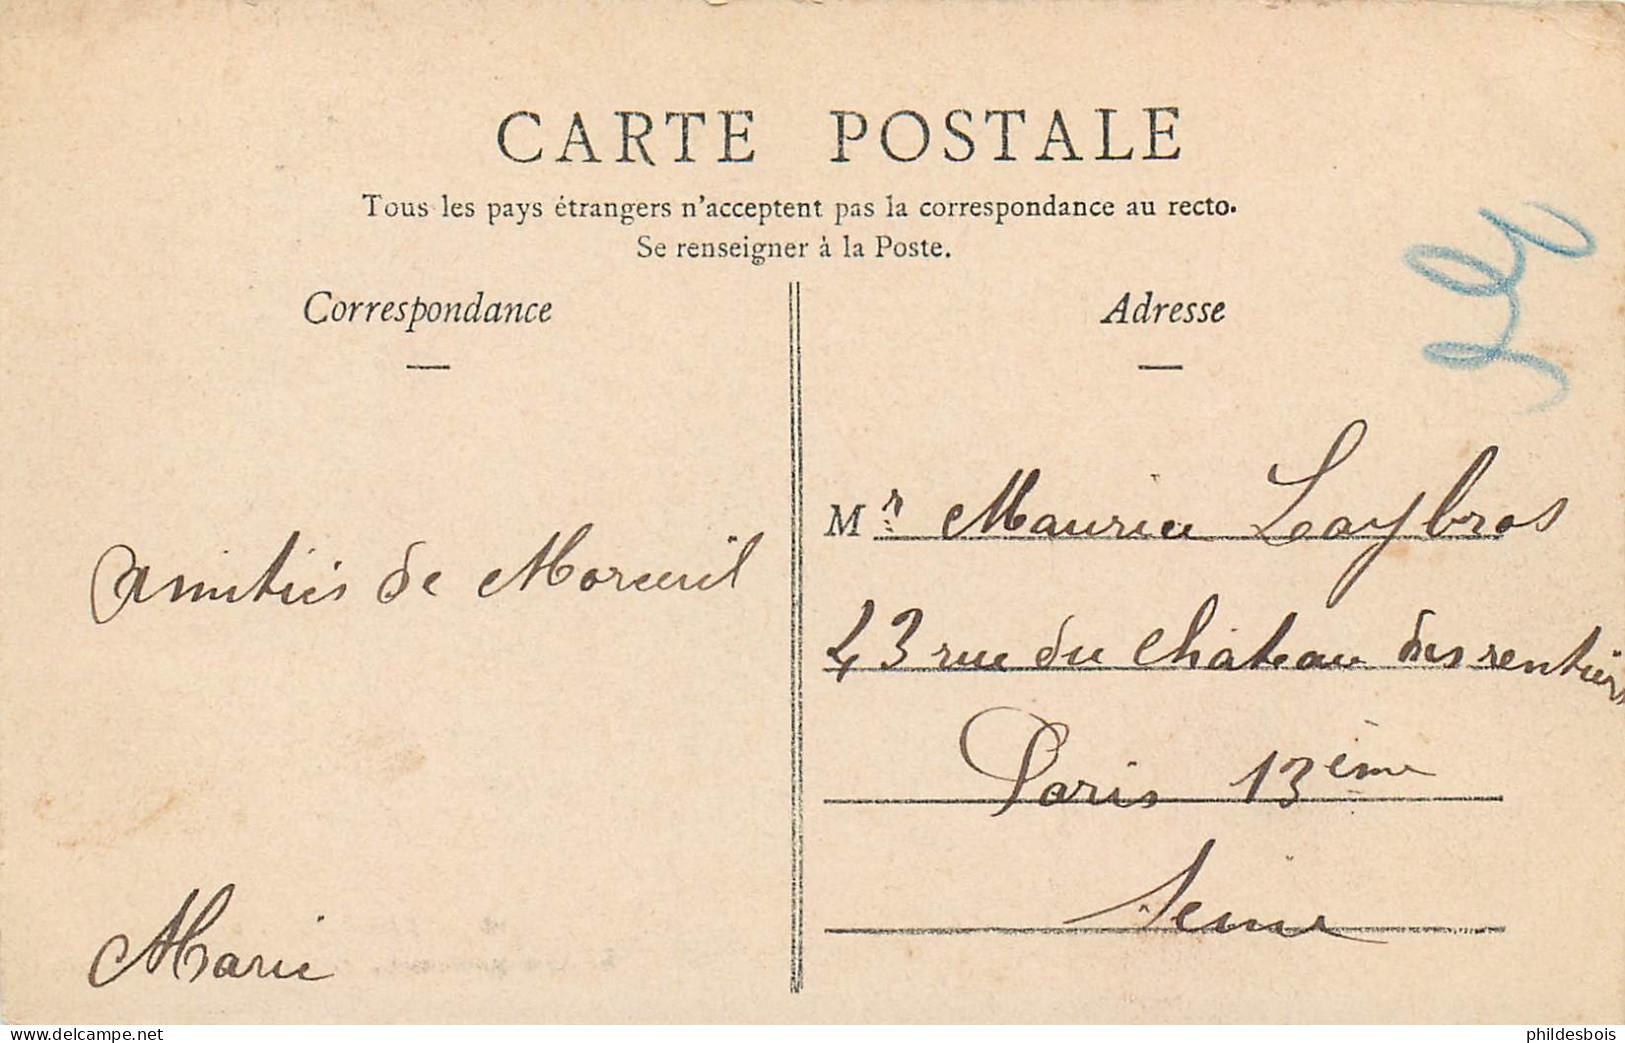 CARTE POSTALE
Tous les pays étrangers n'acceptent pas la correspondance au recto.
Se renseigner à la Poste.
Correspondance
Adresse
Mr Maurice Laybros
Amitiés de Moreuil
43 rue du Château des rentiers
Paris 13ème
Seine
Marie
www.delcampe.net
phildesbois